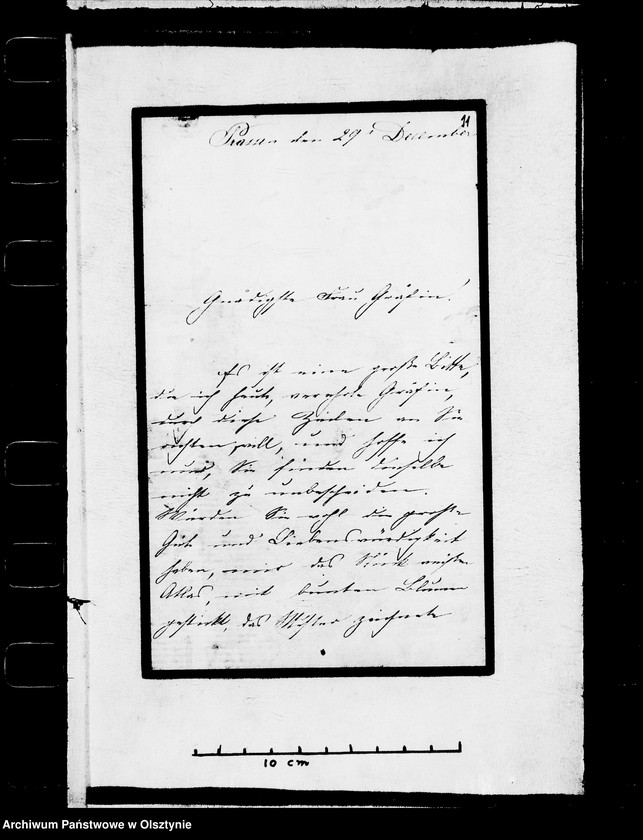 11
Prassen den 29t December
Gnädigste Frau Gräfin!
Es ist eine große Bitte,
die ich heute, verehrte Gräfin,
durch diese Zeilen an Sie
richten will, und hoffe ich
nur, Sie finden dieselbe
nicht zu unbescheiden.
Würden Sie wohl die große
Güte und Liebenswürdigkeit
haben, mir das Stück weißen
Atlas, mit bunten Blumen
gestickt, das Muster zeichnete
10 cm
Archiwum Państwowe w Olsztynie